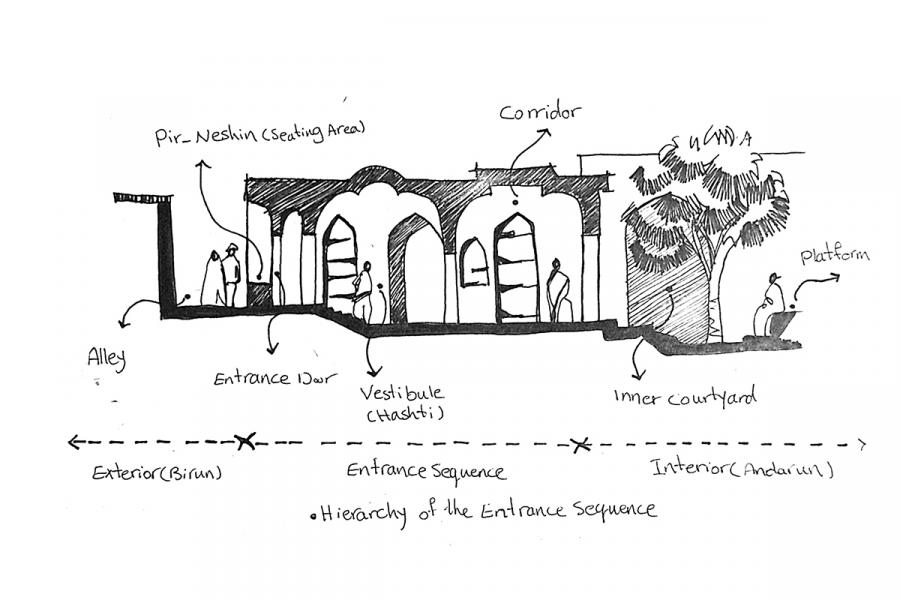 Corridor
Pir-Neshin (Seating Area)
Platform
Alley
Entrance Door
Vestibule
(Hashti)
Inner Courtyard
Exterior (Birun)
Entrance Sequence
Interior (Andarun)
•Hierarchy of the Entrance Sequence